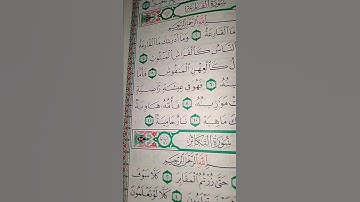 سُورَةُ القَارِعَةِ
اللَّهِ الرَّحْمَٰنِ الرَّحِيمِ
مَا الْقَارِعَةُ وَمَا أَدْرَاكَ مَا الْقَارِعَةُ
النَّاسُ كَالْفَرَاشِ الْمَبْثُوثِ
كَالْعِهْنِ الْمَنْفُوشِ فَأَمَّا
فَهُوَ فِي عِيشَةٍ رَاضِيَةٍ
مَوَازِينُهُ فَأُمُّهُ هَاوِيَةٌ
مَاهِيَهْ نَارٌ حَامِيَةٌ
سُورَةُ التَّكَاثُرِ
اللَّهِ الرَّحْمَٰنِ الرَّحِيمِ
حَتَّىٰ زُرْتُمُ الْمَقَابِرَ كَلَّا سَوْفَ
كَلَّا لَوْ تَعْلَمُونَ